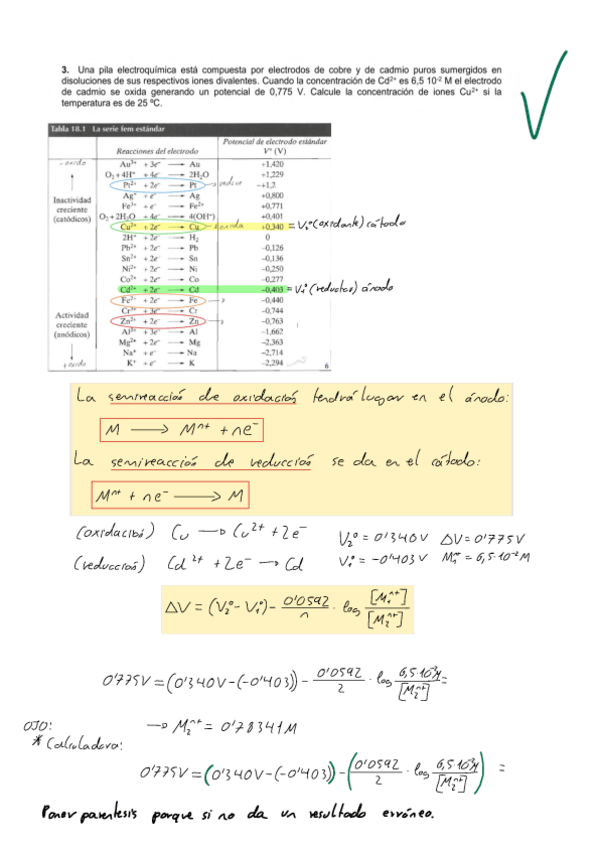 3. Una pila electroquímica está compuesta por electrodos de cobre y de cadmio puros sumergidos en
disoluciones de sus respectivos iones divalentes. Cuando la concentración de Cd²⁺ es 6,5 10⁻² M el electrodo
de cadmio se oxida generando un potencial de 0,775 V. Calcule la concentración de iones Cu²⁺ si la
temperatura es de 25 ºC.
Tabla 18.1 La serie fem estándar
Reacciones del electrodo Potencial de electrodo estándar V° (V)
Au³⁺ + 3e⁻ ⟶ Au +1,420
O₂ + 4H⁺ + 4e⁻ ⟶ 2H₂O +1,229
Pt²⁺ + 2e⁻ ⟶ Pt ~+1,2
Inactividad creciente (catódicos)
Ag⁺ + e⁻ ⟶ Ag +0,800
Fe³⁺ + e⁻ ⟶ Fe²⁺ +0,771
O₂ + 2H₂O + 4e⁻ ⟶ 4(OH⁻) +0,401
Cu²⁺ + 2e⁻ ⟶ Cu +0,340 = V₂° (oxidante) cátodo
2H⁺ + 2e⁻ ⟶ H₂ 0
Pb²⁺ + 2e⁻ ⟶ Pb −0,126
Sn²⁺ + 2e⁻ ⟶ Sn −0,136
Ni²⁺ + 2e⁻ ⟶ Ni −0,250
Co²⁺ + 2e⁻ ⟶ Co −0,277
Cd²⁺ + 2e⁻ ⟶ Cd −0,403 = V₁° (reductor) ánodo
Fe²⁺ + 2e⁻ ⟶ Fe −0,440
Cr³⁺ + 3e⁻ ⟶ Cr −0,744
Actividad creciente (anódicos)
Zn²⁺ + 2e⁻ ⟶ Zn −0,763
Al³⁺ + 3e⁻ ⟶ Al −1,662
Mg²⁺ + 2e⁻ ⟶ Mg −2,363
Na⁺ + e⁻ ⟶ Na −2,714
K⁺ + e⁻ ⟶ K −2,294
6
La semireacción de oxidación tendrá lugar en el ánodo:
M ⟶ Mⁿ⁺ + ne⁻
La semireacción de reducción se da en el cátodo:
Mⁿ⁺ + ne⁻ ⟶ M
(oxidación) Cu ⟶ Cu²⁺ + 2e⁻ V₂° = 0'340V ΔV = 0'775V
(reducción) Cd²⁺ + 2e⁻ ⟶ Cd V₁° = −0'403V M₁ⁿ⁺ = 6,5·10⁻²M
ΔV = (V₂° − V₁°) − 0'0592/n · log [M₁ⁿ⁺]/[M₂ⁿ⁺]
0'775V = (0'340V − (−0'403)) − 0'0592/2 · log 6,5·10⁻²M/[M₂ⁿ⁺] =
OJO: ⟶ M₂ⁿ⁺ = 0'78341M
* Calculadora:
0'775V = (0'340V − (−0'403)) − (0'0592/2 · log 6,5·10⁻²M/[M₂ⁿ⁺]) =
Poner parentesis porque si no da un resultado erróneo.